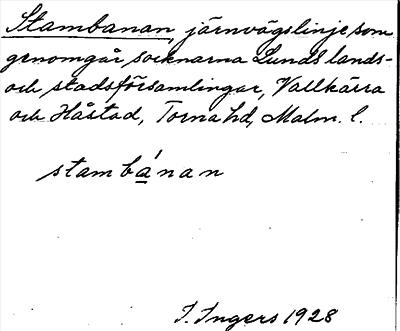 Stambanan, järnvägslinje, som
genomgår socknarna Lunds lands-
och stadsförsamlingar, Vallkärra
och Håstad, Torna hd, Malm. l.
stambánan
I. Ingers 1928